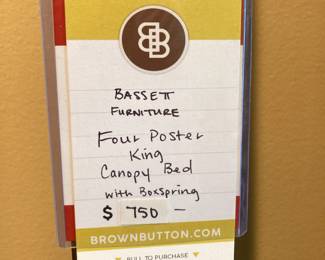 BASSETT
FURNITURE
Four Poster
King
Canopy Bed
with Boxspring
$ 750 —
BROWNBUTTON.COM
PULL TO PURCHASE